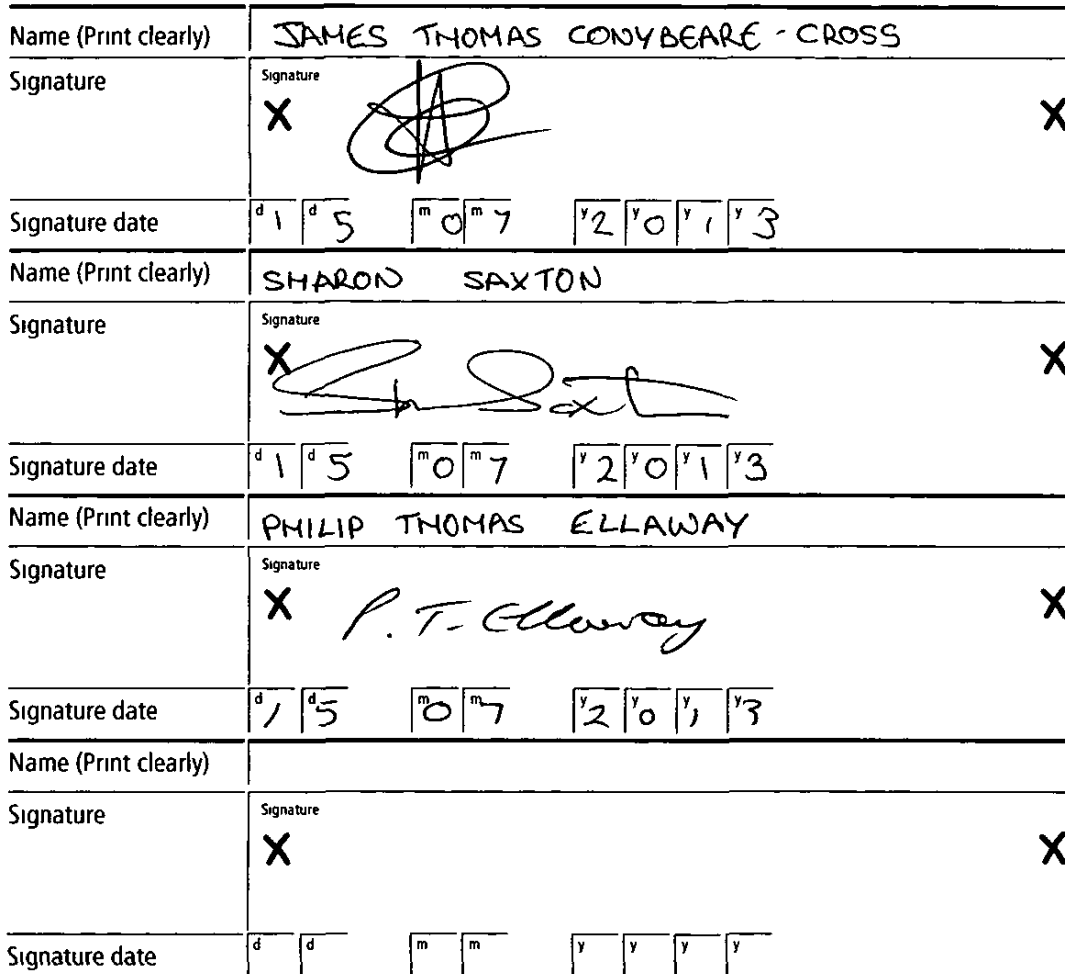 Name (Print clearly) JAMES THOMAS CONYBEARE - CROSS
Signature Signature
X X
Signature date d 1 d 5 m 0 m 7 y 2 y 0 y 1 y 3
Name (Print clearly) SHARON SAXTON
Signature Signature
X X
S Saxton
Signature date d 1 d 5 m 0 m 7 y 2 y 0 y 1 y 3
Name (Print clearly) PHILIP THOMAS ELLAWAY
Signature Signature
X P. T. Ellaway X
Signature date d 1 d 5 m 0 m 7 y 2 y 0 y 1 y 3
Name (Print clearly)
Signature Signature
X X
Signature date d d m m y y y y